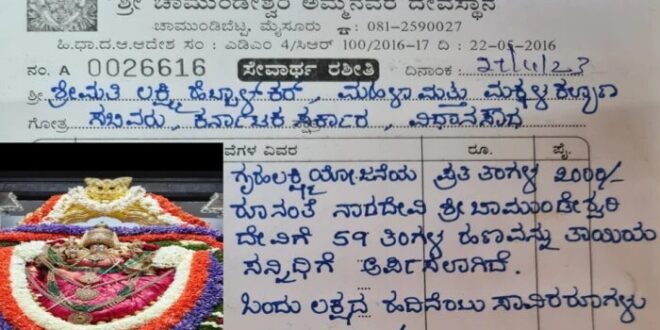 ಶ್ರೀ ಚಾಮುಂಡೇಶ್ವರಿ ಅಮ್ಮನವರ ದೇವಸ್ಥಾನ
ಚಾಮುಂಡಿಬೆಟ್ಟ, ಮೈಸೂರು ☎: 081-2590027
ಹಿ.ಧಾ.ದ.ಆ.ಆದೇಶ ಸಂ : ಎಡಿಎಂ 4/ಸಿಆರ್ 100/2016-17 ದಿ : 22-05-2016
ನಂ. A 0026616 ಸೇವಾರ್ಥ ರಶೀತಿ ದಿನಾಂಕ :
ಶ್ರೀ ಶ್ರೀಮತಿ ಲಕ್ಷ್ಮಿ ಹೆಬ್ಬಾಳ್ಕರ್, ಮಹಿಳಾ ಮತ್ತು ಮಕ್ಕಳ ಕಲ್ಯಾಣ
ಗೋತ್ರ ಸಚಿವರು, ಕರ್ನಾಟಕ ಸರ್ಕಾರ, ವಿಧಾನಸೌಧ
ವೆಗಳ ವಿವರ ರೂ. ಪೈ.
ಗೃಹಲಕ್ಷ್ಮಿ ಯೋಜನೆಯ ಪ್ರತಿ ತಿಂಗಳ 2000/-
ರೂನಂತೆ ನಾಡದೇವಿ ಶ್ರೀ ಚಾಮುಂಡೇಶ್ವರಿ
ದೇವಿಗೆ 59 ತಿಂಗಳ ಹಣವನ್ನು ತಾಯಿಯ
ಸನ್ನಿಧಿಗೆ ಅರ್ಪಿಸಲಾಗಿದೆ.
ಒಂದು ಲಕ್ಷದ ಹದಿನೆಂಟು ಸಾವಿರ ರೂಗಳು